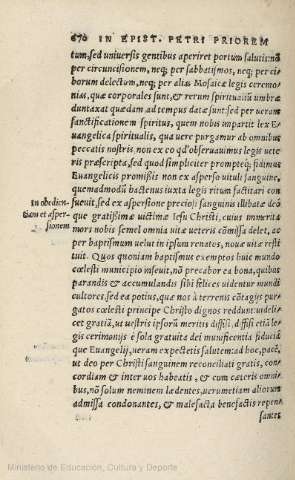 670 IN EPIST. PETRI PRIOREM
tum, sed universis gentibus aperiret portum salutis: nõ
per circuncisionem, neq; per sabbatismos, neq; per ci-
borum delectum, neq; per alias Mosaicæ legis ceremo-
nias, quæ corporales sunt, & rerum spiritualiũ umbræ
duntaxat quædam ad tempus datæ sunt: sed per veram
sanctificationem spiritus, quem nobis impartit lex E-
uangelica spiritualis, qua vere purgamur ab omnibus
peccatis nostris, non ex eo qd' obseruauimus legis uete
ris præscripta, sed quod simpliciter prompteq; fidimus
Euangelicis promißis non ex asperso uituli sanguine,
quemadmodũ hactenus iuxta legis ritum factitari con
In obedien-
tiam et asper-
sionem
sueuit, sed ex aspersione preciosi sanguinis illibatæ deo
que gratißimæ uictimæ Iesu Christi, cuius immerita
mors nobis semel omnia vitæ ueteris cõmissa delet, ac
per baptismum uelut in ipsum renatos, nouæ uitæ resti
tuit. Quos quoniam baptismus exemptos huic mundo
cœlesti municipio inseuit, nõ precabor ea bona, quibus
parandis & accumulandis sibi felices uidentur mundi
cultores, sed ea potius, quæ uos à terrenis cõtagijs pur-
gatos cœlesti principe Christo dignos reddunt: uideli-
cet gratiã, ut uestris ipsorũ meritis diffisi, diffisi etiã le-
gis cerimonijs è sola gratuita dei munificentia fiducia
que Euangelij, ueram expectetis salutem: ad hoc, pacẽ,
ut deo per Christi sanguinem reconciliati gratis, con-
cordiam & inter uos habeatis, & cum cæteris omni-
bus, nõ solum neminem lædentes, uerumetiam aliorum
admissa condonantes, & malefacta benefactis repen-
santes
Ministerio de Educación, Cultura y Deporte